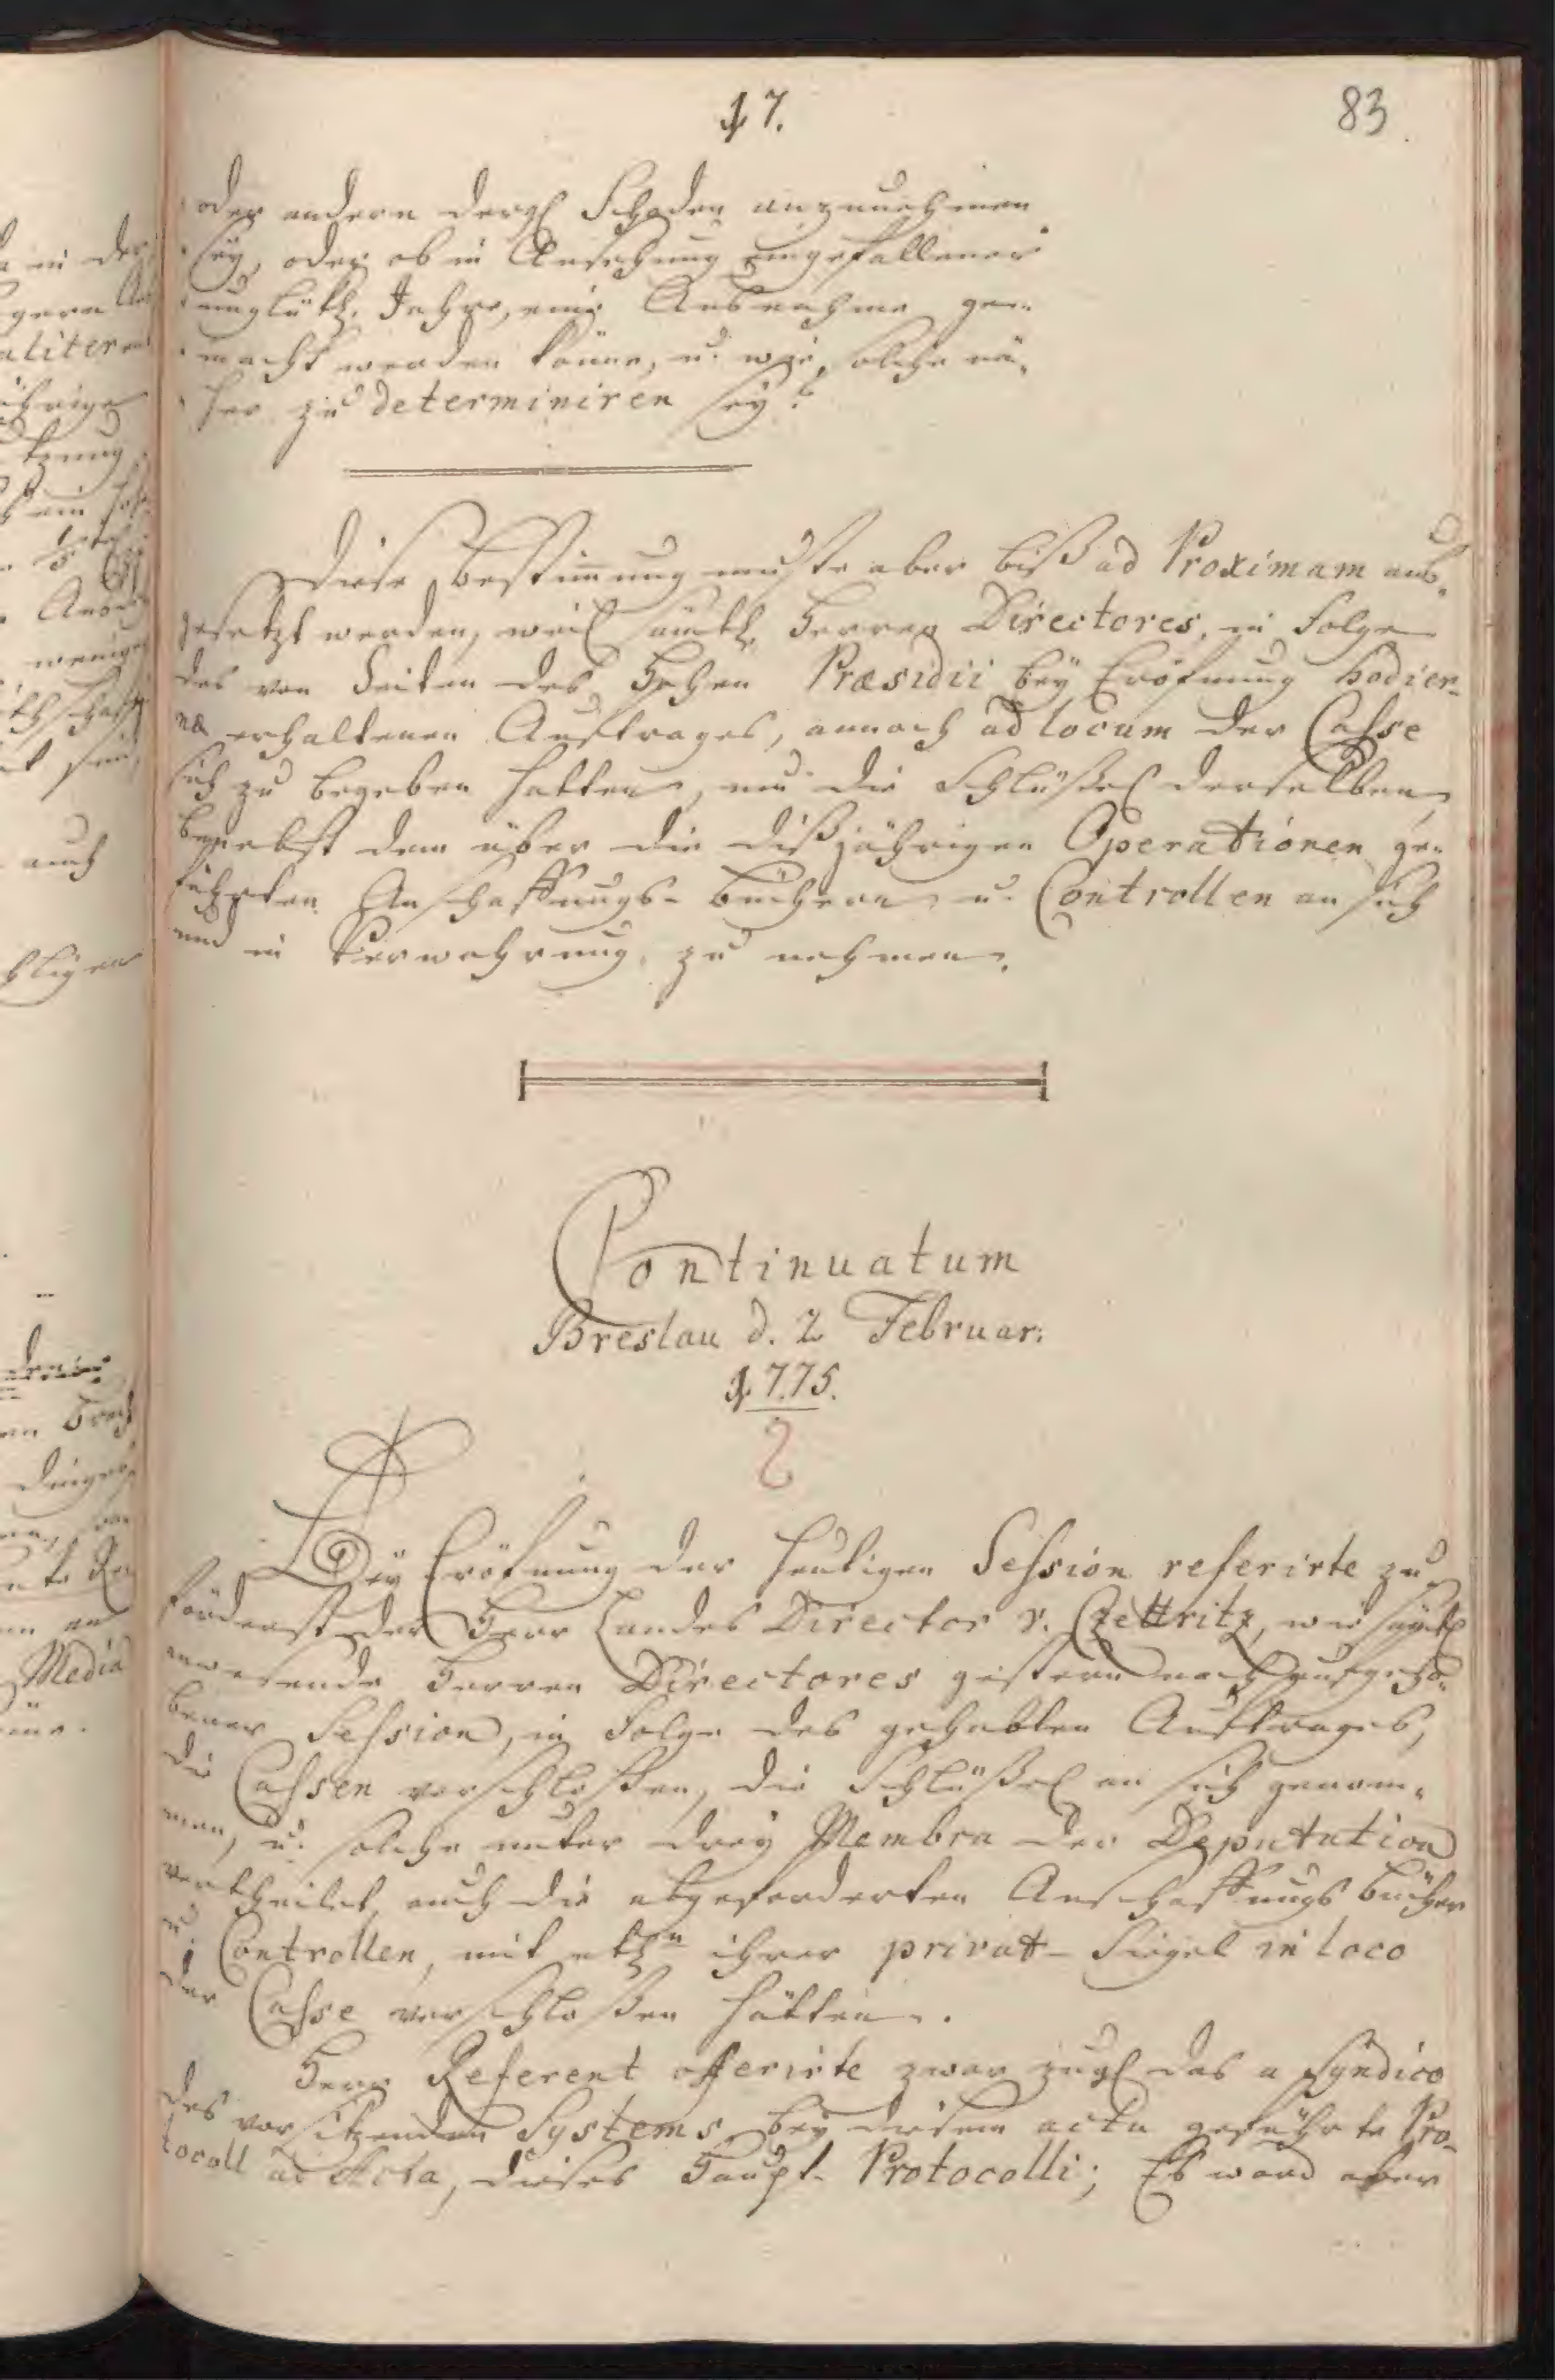 17.
83
oder andern dergl Schaden anzunehmen
sey, oder ob in Ansehung eingefallener
unglükl. Jahre, eine Ausnahme ge-
macht werden könne, u. wie, solche nä-
her zu determiniren sey?
Diese Bestimmung muste aber biß ad Proximam aus-
gesetzt werden, weil sämtl. Herren Directores, in Folge
des von Seiten des Hohen Præsidii bey Eröfnung hodier-
næ erhaltenen Auftrages, annoch ad locum der Casse
sich zu begeben hatten, um die Schlüßel derselben,
benebst dem über die dißjährigen Operationen ge-
führten Anschaffungs-Büchern u. Controllen an sich
und in Verwahrung zu nehmen.
Continuatum
Breslau d. 2 Februar:
1775.
Bey Eröfnung der heutigen Session referirte zu-
förderst der Herr Landes Director v. Czettritz, wie sämtl
anwesende Herren Directores gestern nach aufgeho-
bener Session, in Folge des gehabten Auftrages,
die Cassen verschloßen, die Schlüßel an sich genom-
men, u. solche unter drey Membra der Deputation
vertheilet, auch die abgeforderten Anschaffungs Bücher
u. Controllen, mit ihrer privat-Siegel in loco
der Casse verschloßen hätten.
Herr Referent offerirte zwar zugl das a Syndico
des vorsitzenden Systems bey diesem actu geführte Pro-
tocoll ad Acta, dieses Haupt-Protocolli; Es ward aber